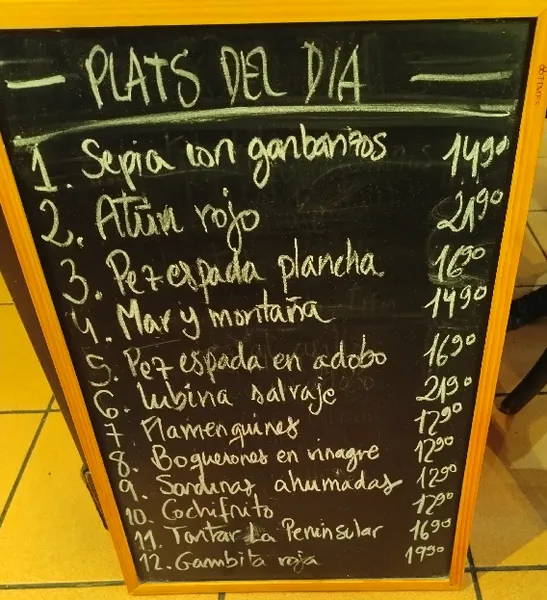 PLATS DEL DIA
1. Sepia con ganbanzos 14,90
2. Atún rojo 21,90
3. Pez espada plancha 16,90
4. Mar y montaña 14,90
5. Pez espada en adobo 16,90
6. Lubina salvaje 21,90
7. Flamenquines 12,90
8. Boquerones en vinagre 12,90
9. Sardinas ahumadas 12,90
10. Cochifrito 12,90
11. Tartar La Peninsular 16,90
12. Gambita roja 19,90